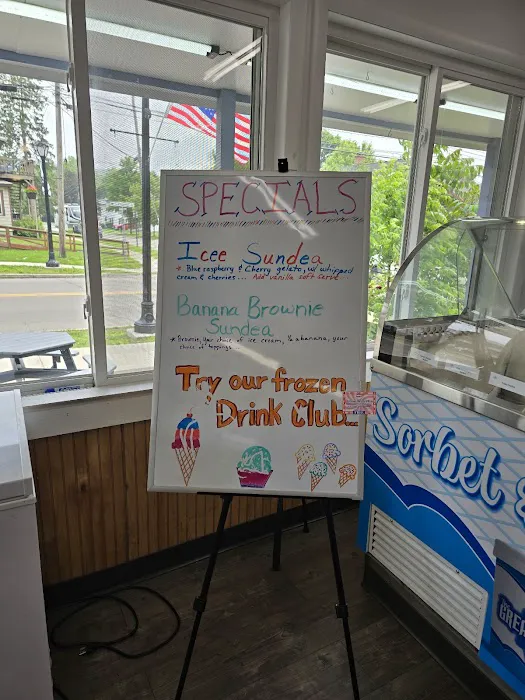 SPECIALS
Icee Sundea
* Blue raspberry & Cherry gelato, w/ whipped
cream & cherries.... Add vanilla soft serve
Banana Brownie
Sundea
* Brownie, Your choice of ice cream, ½ a banana, your
choice of toppings
Try our frozen
Drink Club...
Sorbet &
GREA